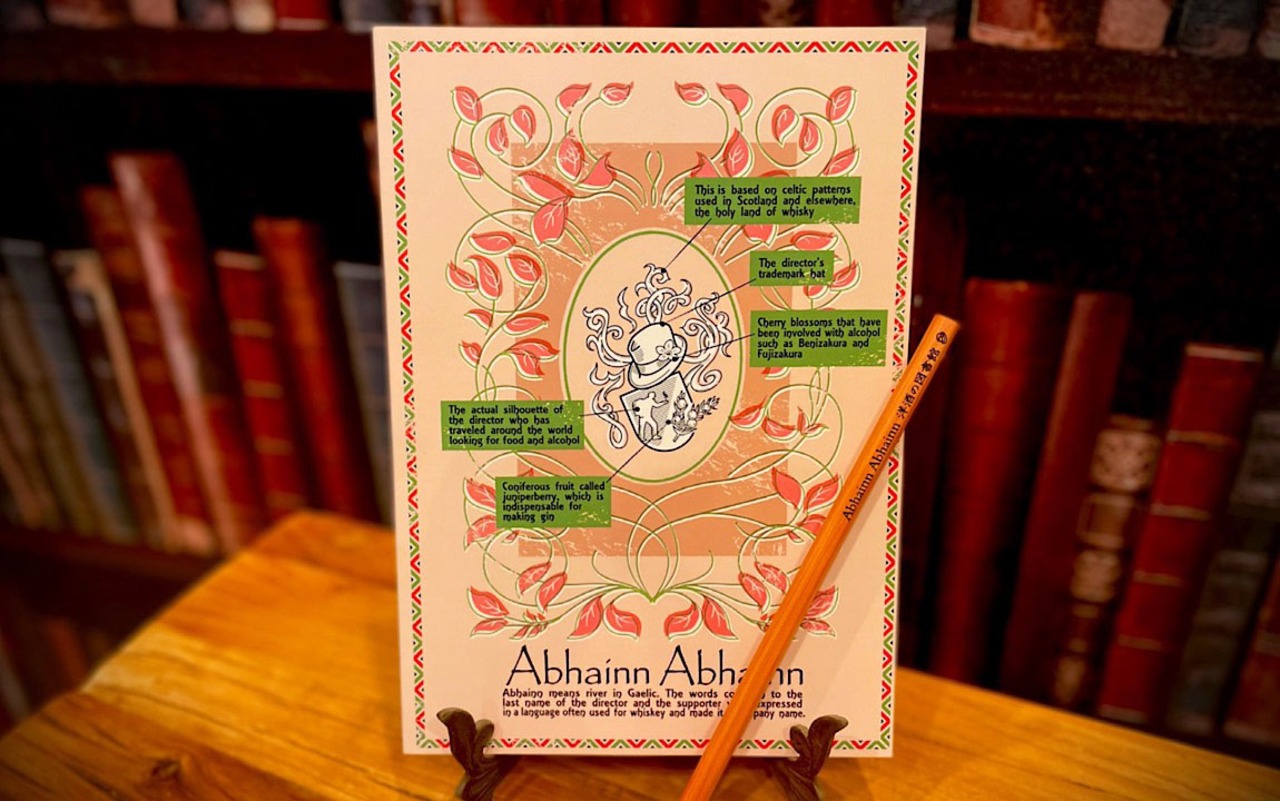 This is based on celtic patterns
used in Scotland and elsewhere,
the holy land of whisky
The director's
trademark hat
Cherry blossoms that have
been involved with alcohol
such as Benizakura and
Fujizakura
The actual silhouette of
the director who has
traveled around the world
looking for food and alcohol
Coniferous fruit called
juniperberry, which is
indispensable for
making gin
Abhainn Abhainn
Abhainn means river in Gaelic. The words to the
last name of the director and the supporter expressed
in a language often used for whiskey and made name.
Abhainn Abhainn 洋酒の図書館